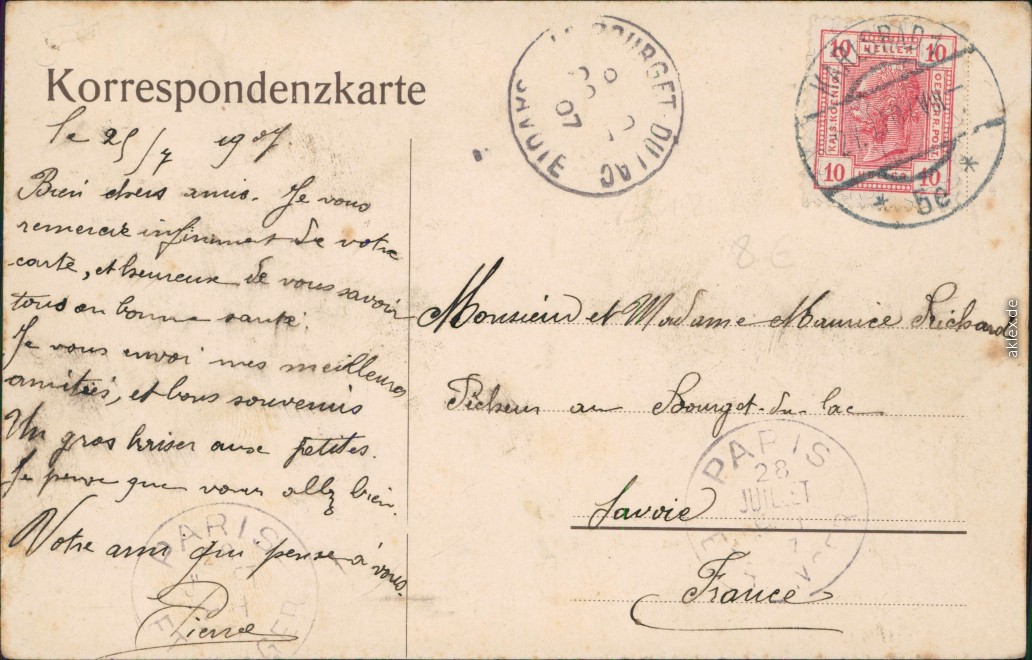 Korrespondenzkarte
le 25/7 1907.
Bien chers amis. Je vous
remercie infiniment de votre
carte, et heureux de vous savoir
tous en bonne santé.
Je vous envoi mes meilleures
amitiés, et bons souvenirs
Un gros briser aux petites.
Je pense que vous allez bien.
Votre ami qui pense à vous.
Pierre
LE BOURGET-DU-LAC
SAVOIE
07
10 HELLER 10
KAIS. KOENIGL. OESTERR. POST
10 10
* 5c *
8 E
Monsieur et Madame Maurice Richard
Pêcheur au Bourget-du-lac
Savoie
France
PARIS
28
JUILLET
PARIS
ETRANGER
aklex.de